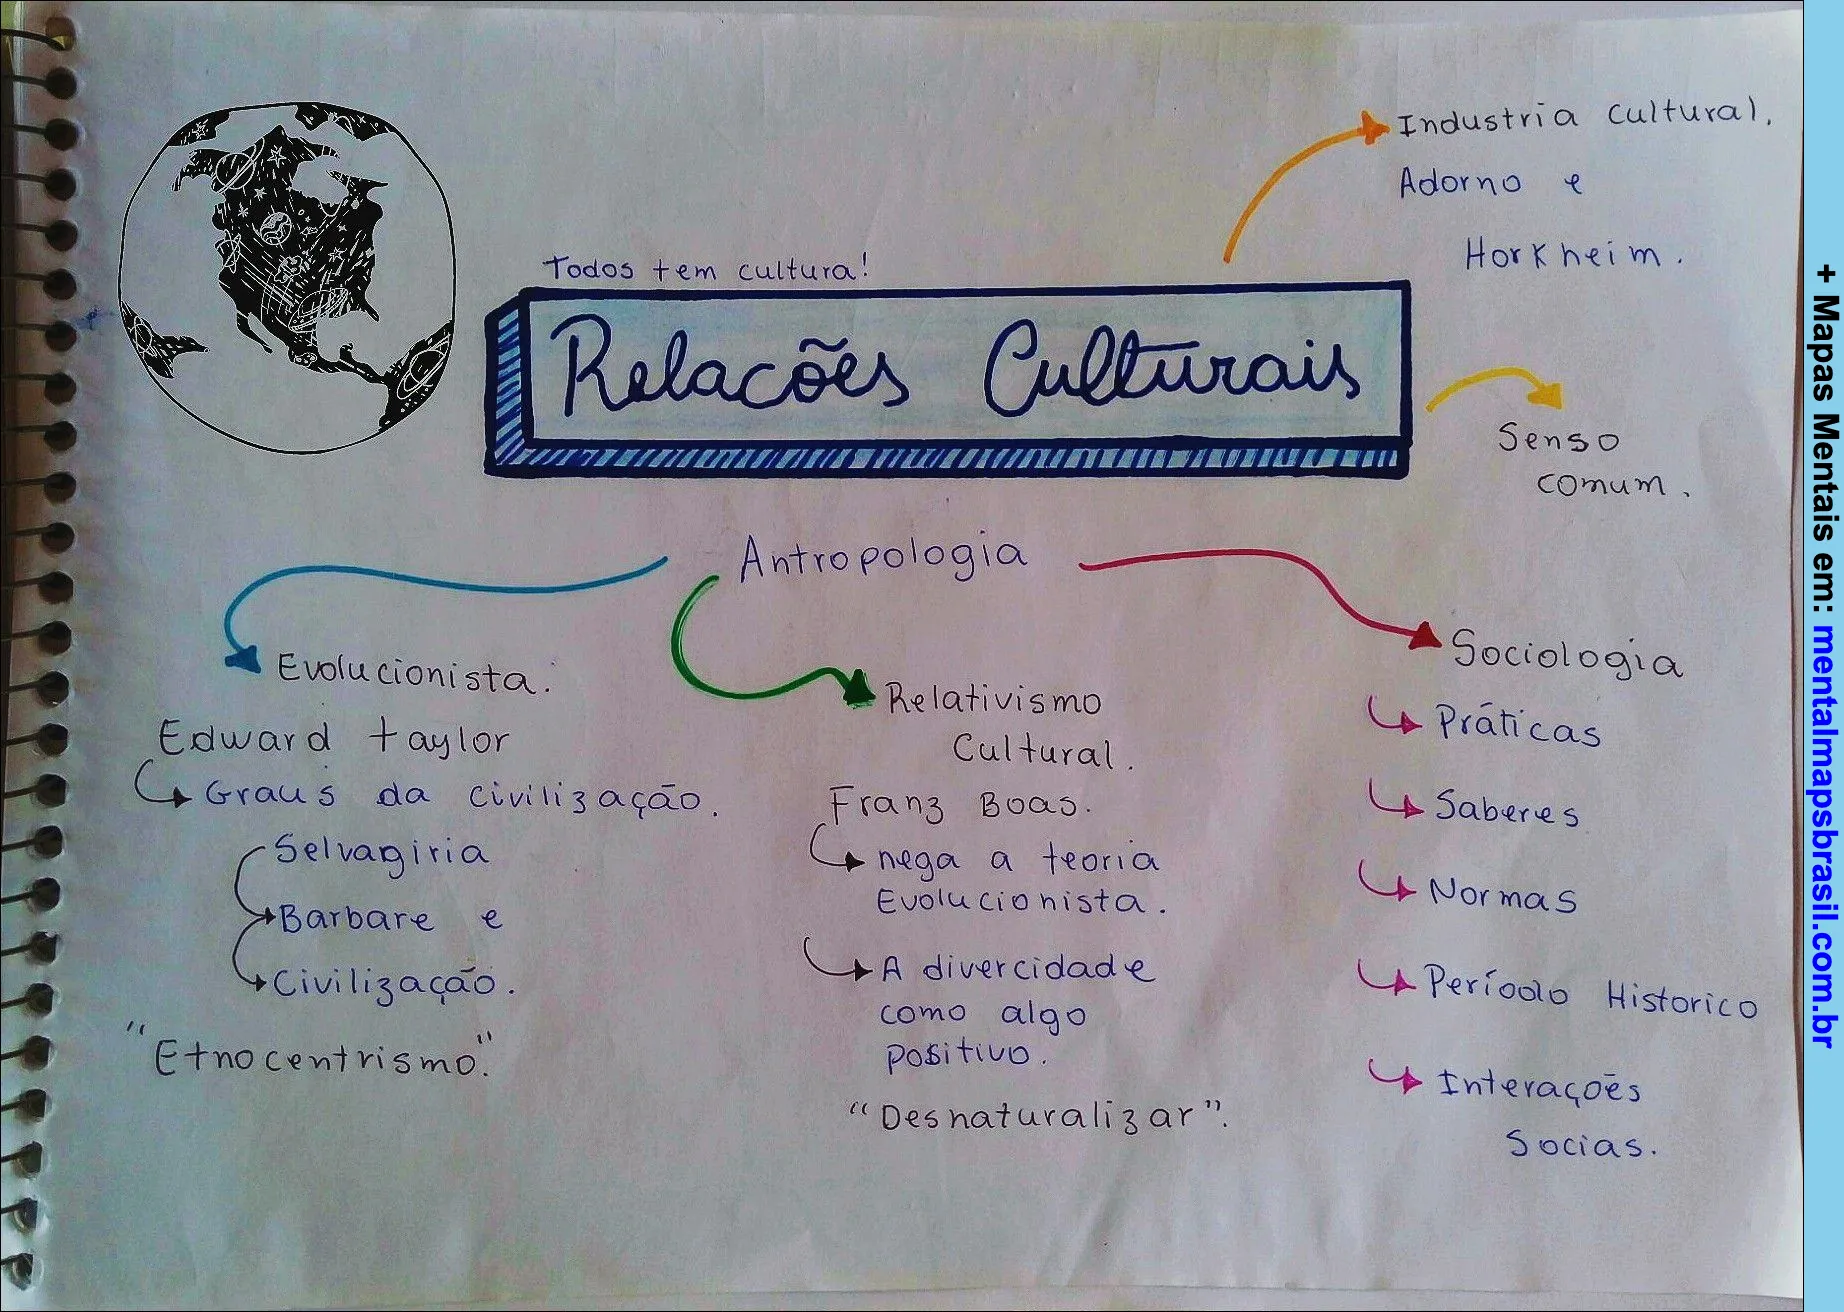 Todos tem cultura!
Relacões Culturais
Industria cultural.
Adorno e
Horkheim.
Senso
comum.
Antropologia
Evolucionista.
Edward taylor
Graus da civilização.
Selvagiria
Barbare e
Civilização.
"Etnocentrismo".
Relativismo
Cultural.
Franz Boas.
nega a teoria
Evolucionista.
A divercidade
como algo
positivo.
"Desnaturalizar".
Sociologia
Práticas
Saberes
Normas
Período Historico
Interações
Socias.
+ Mapas Mentais em: mentalmapsbrasil.com.br